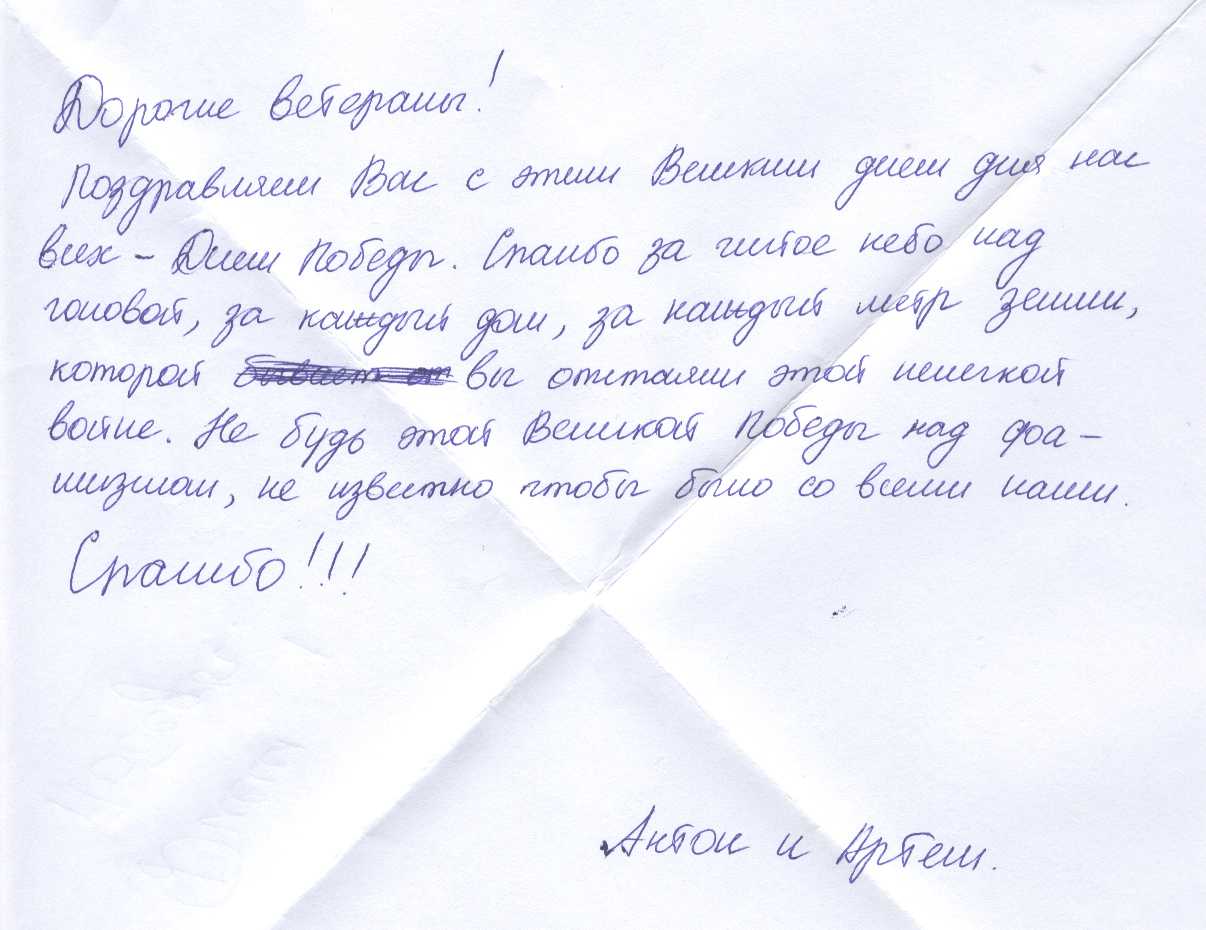 Дорогие ветераны!
Поздравляем Вас с этим Великим днем для нас
всех – Днем Победы. Спасибо за чистое небо над
головой, за каждый дом, за каждый метр земли,
которой вы отстаяли этой нелегкой
войне. Не будь этой Великой Победы над фа-
шизмом, не известно чтобы было со всеми нами.
Спасибо!!!
Антон и Артем.